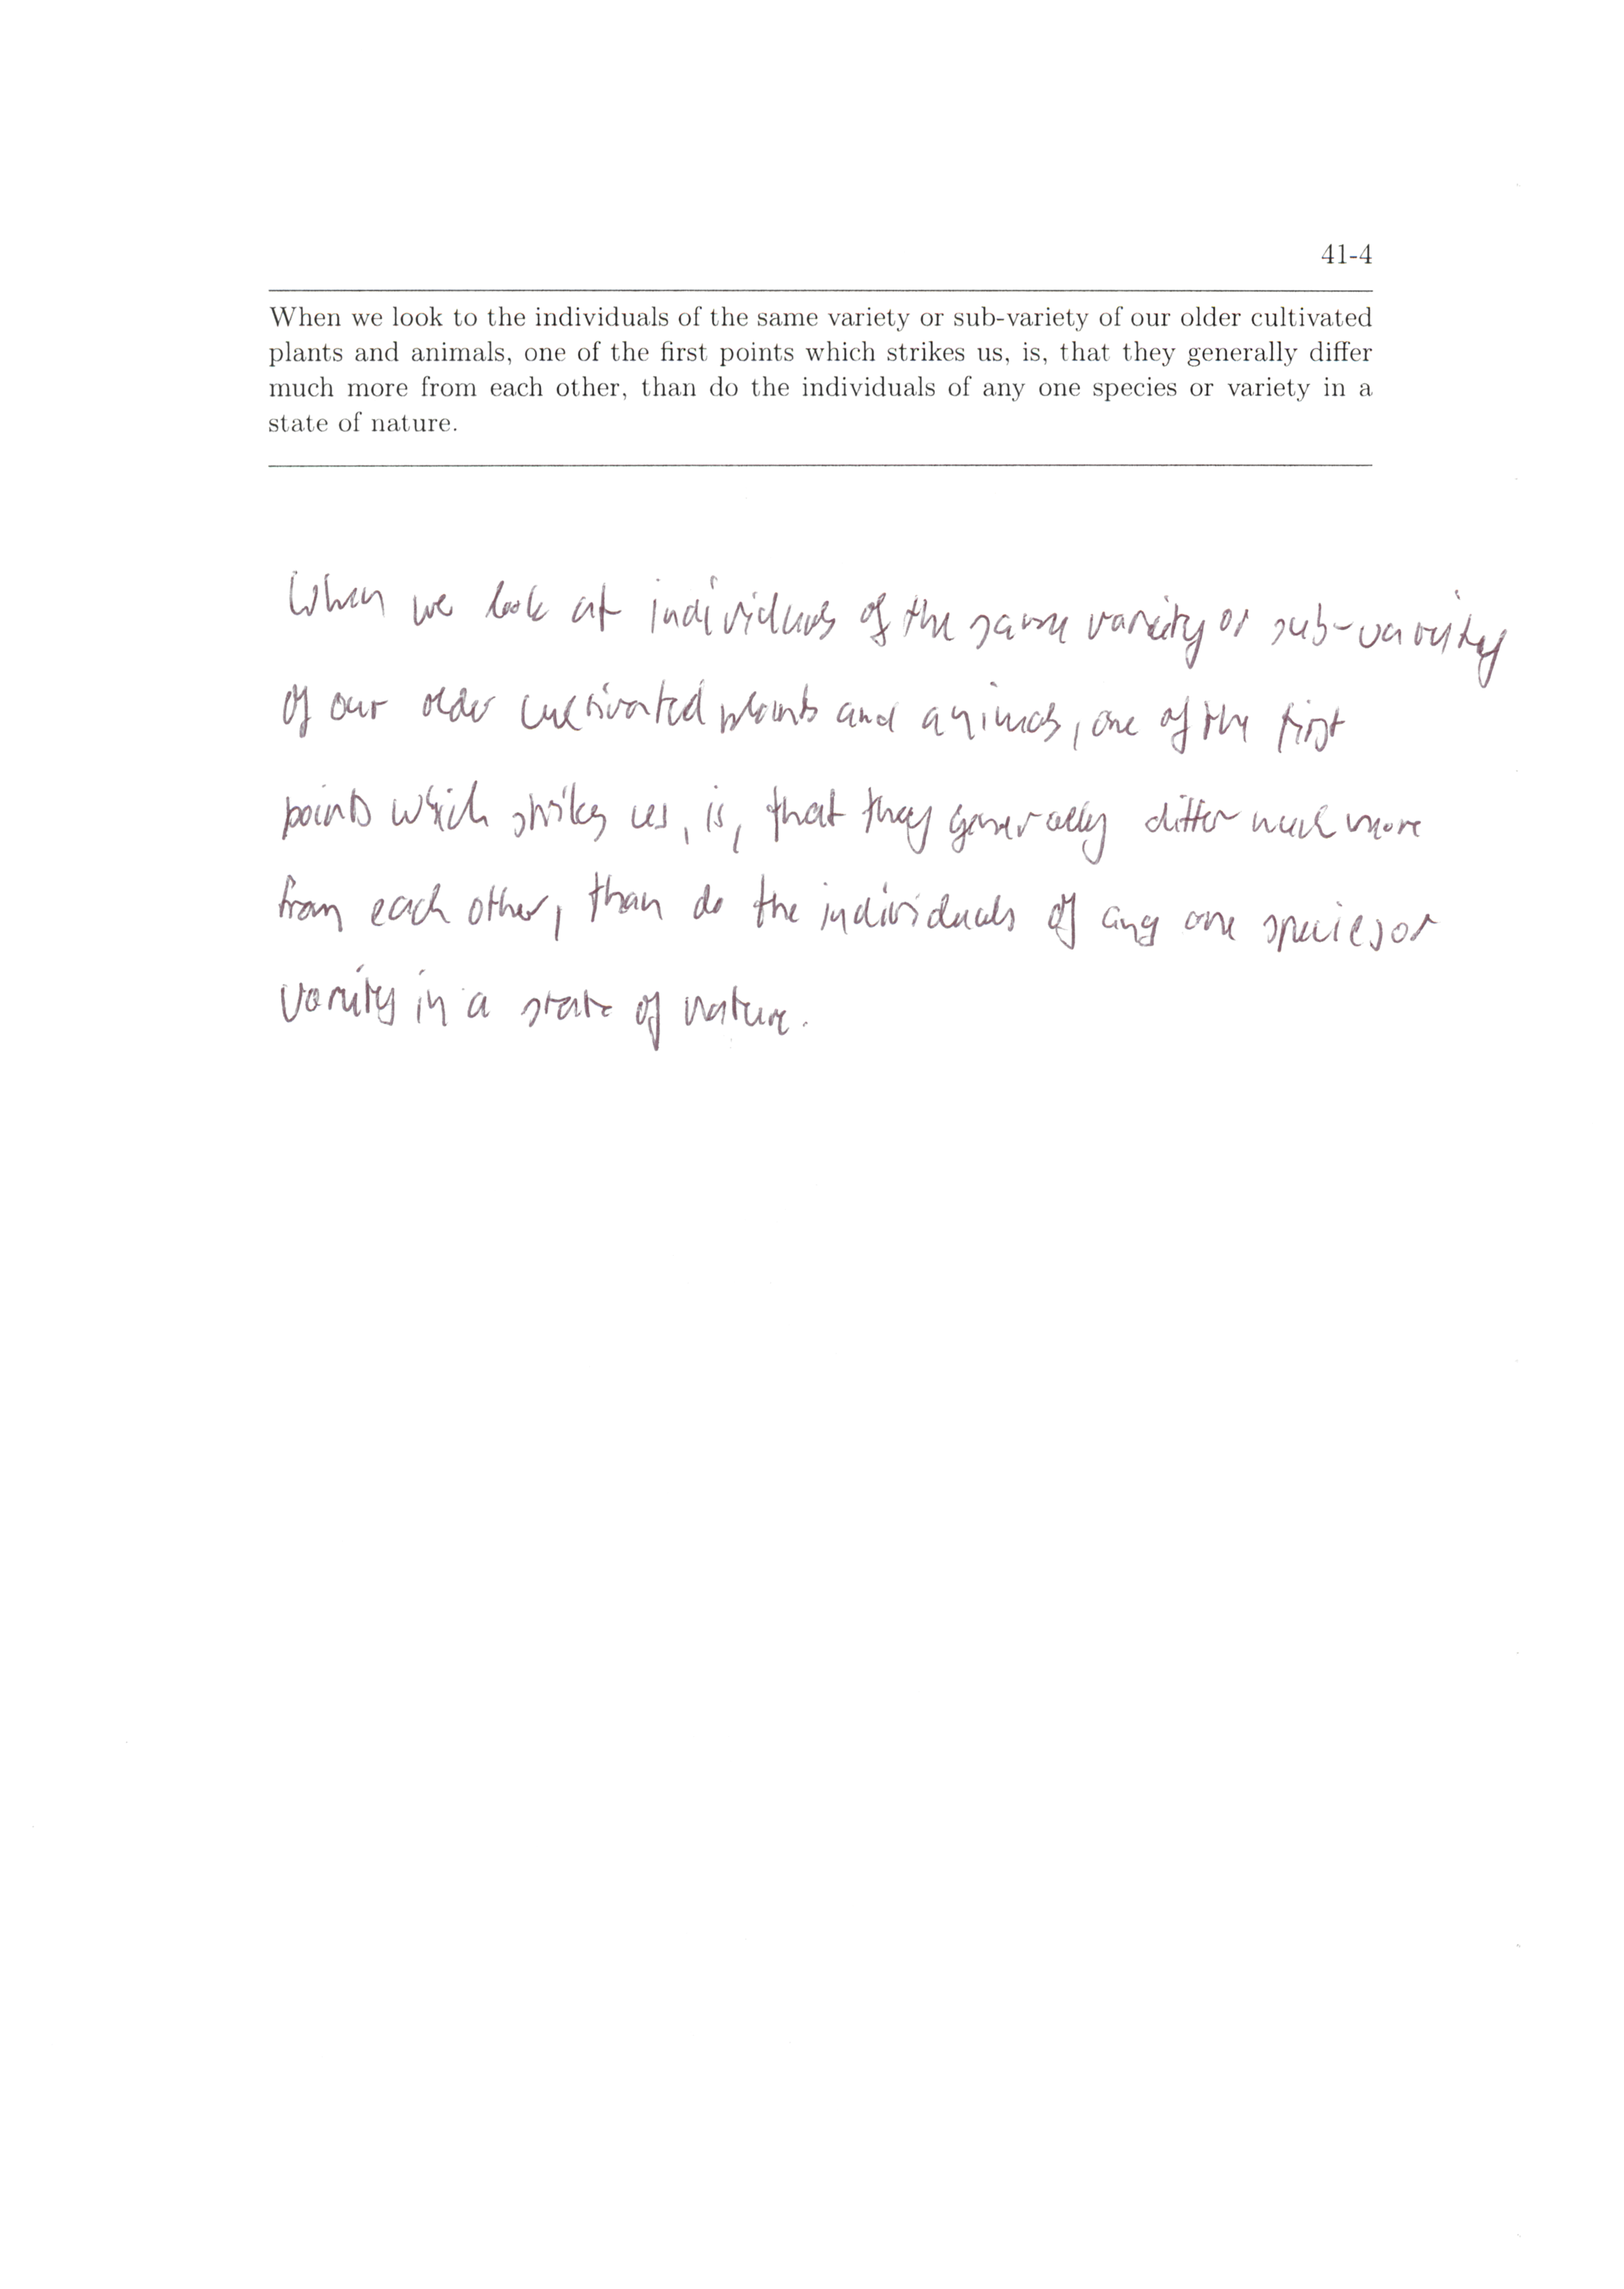 41-4
When we look to the individuals of the same variety or sub-variety of our older cultivated
plants and animals, one of the first points which strikes us, is, that they generally differ
much more from each other, than do the individuals of any one species or variety in a
state of nature.
When we look at individuals of the same variety or sub-variety
of our older cultivated plants and animals, one of the first
points which strikes us, is, that they generally differ much more
from each other, than do the individuals of any one species or
variety in a state of nature.